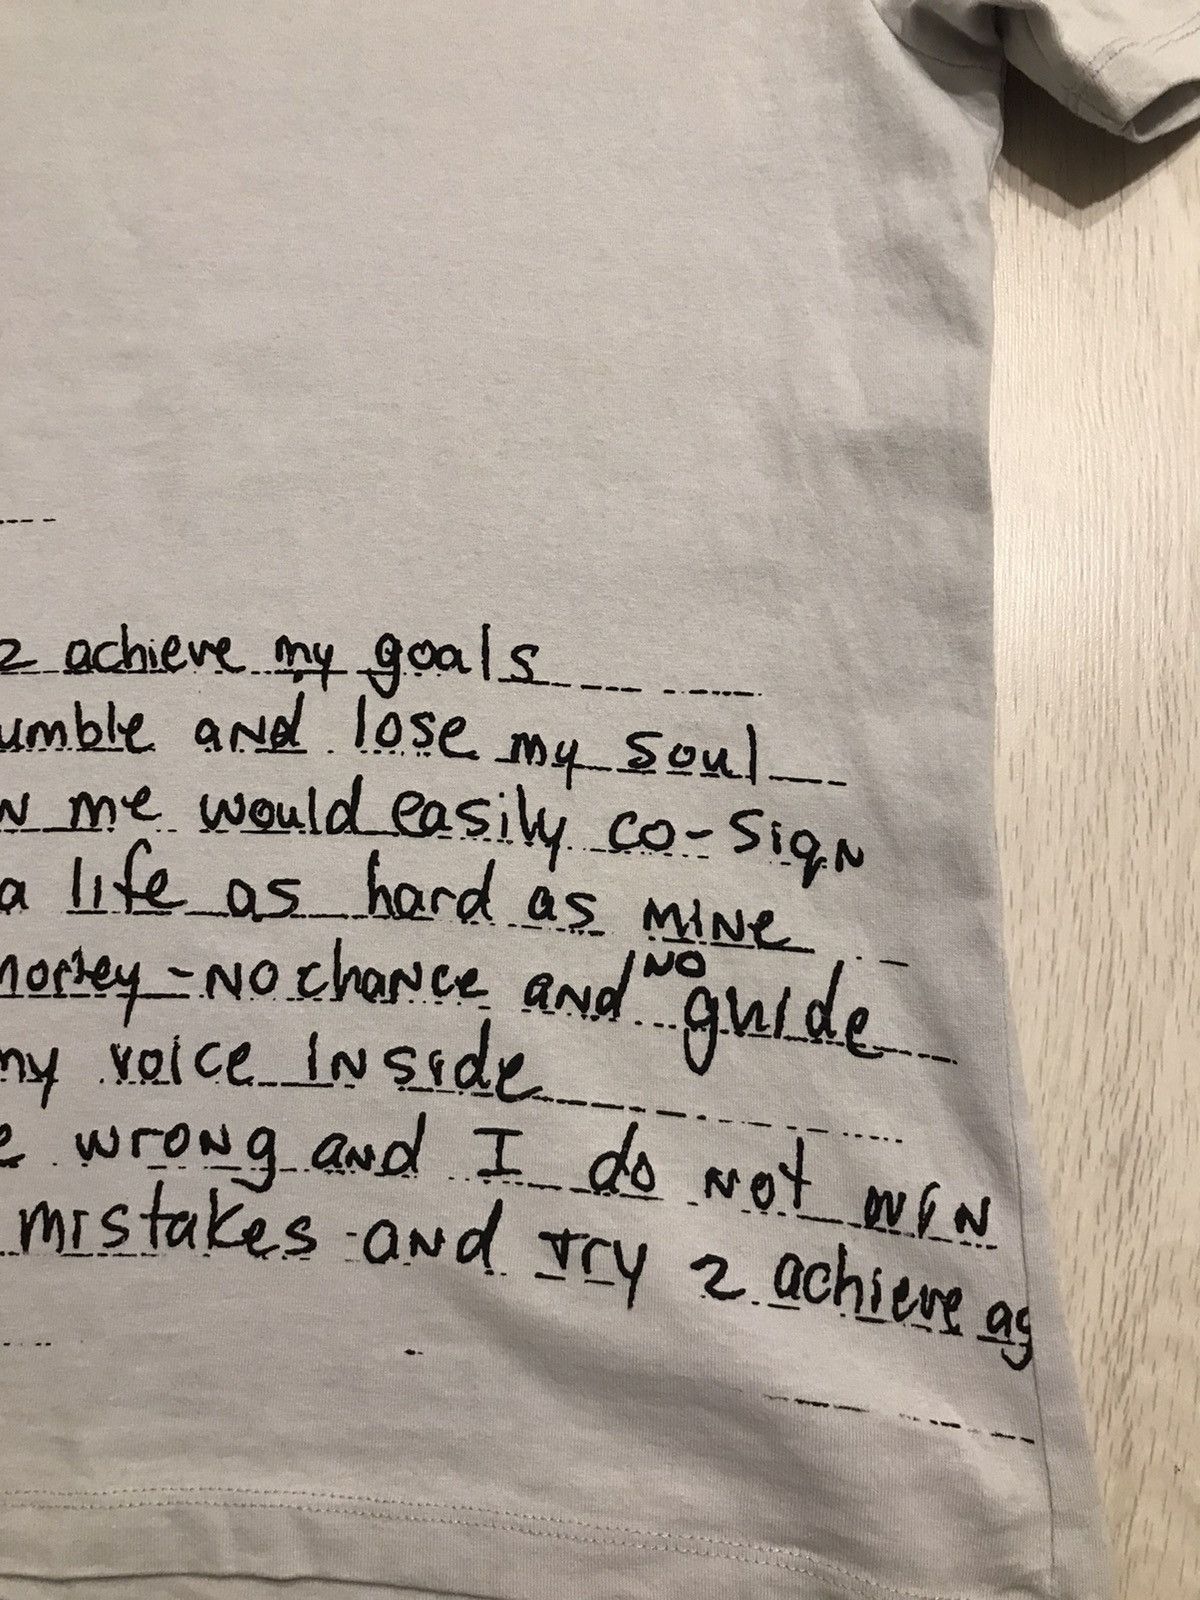 2 achieve my goals
umble and lose my soul
w me would easily co-sign
a life as hard as mine
money - no chance and no guide
my voice inside
e wrong and I do not win
mistakes and try 2 achieve ag